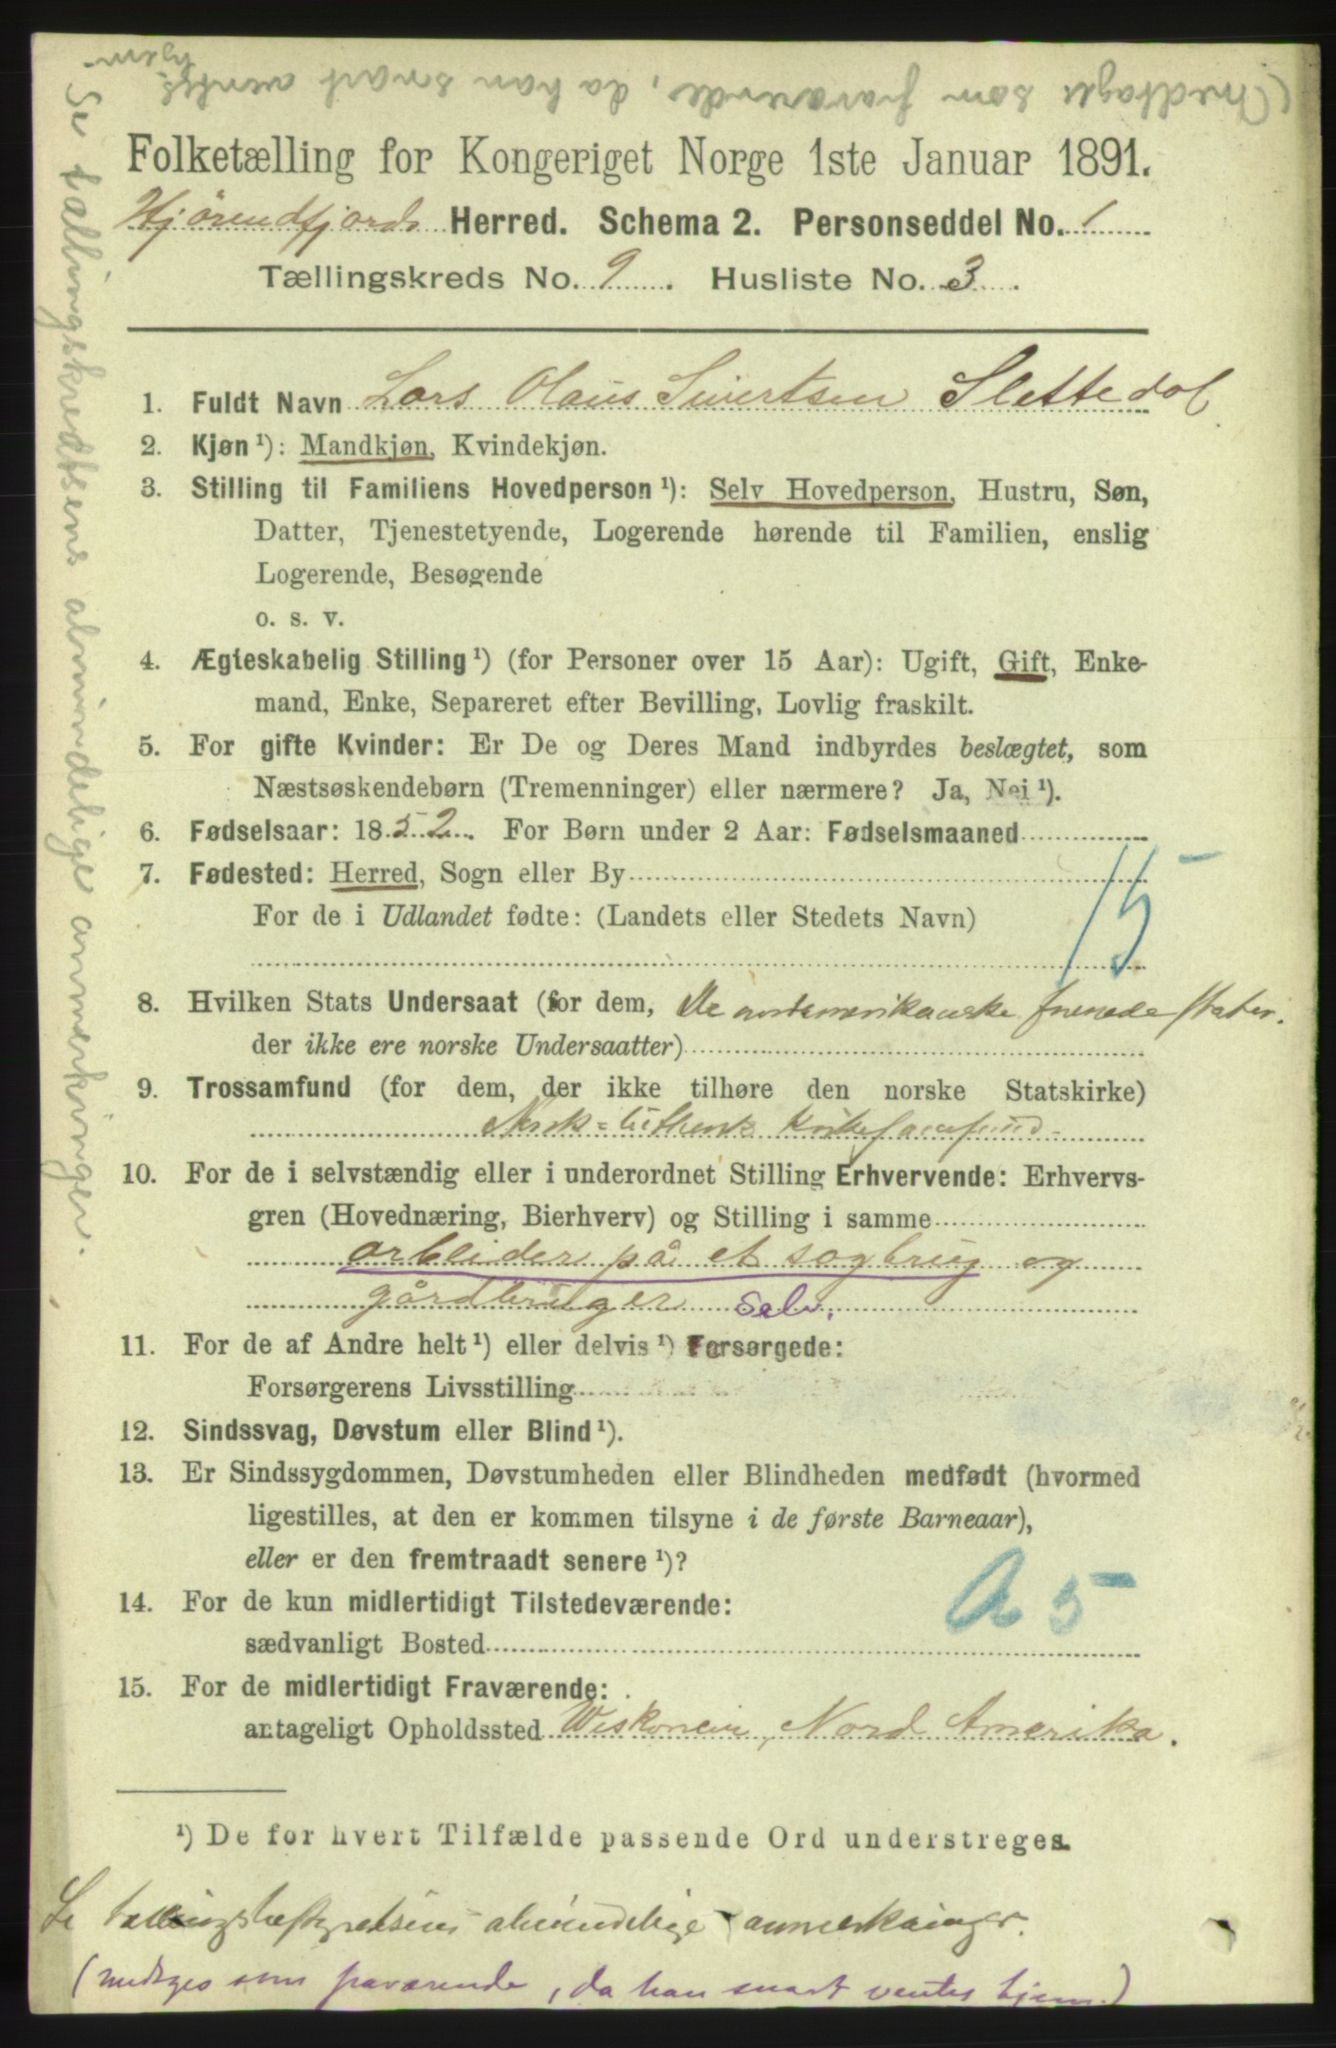 (Medtages som fraværende, da han snart ventes hjem.
Se tællingskredsens almindelige anmerkninger.
Folketælling for Kongeriget Norge 1ste Januar 1891.
Hjørendfjords Herred. Schema 2. Personseddel No. 1
Tællingskreds No. 9. Husliste No. 3.
1. Fuldt Navn Lars Olaus Sivertsen Slettedal
2. Kjøn¹): Mandkjøn, Kvindekjøn.
3. Stilling til Familiens Hovedperson¹): Selv Hovedperson, Hustru, Søn,
Datter, Tjenestetyende, Logerende hørende til Familien, enslig
Logerende, Besøgende
o. s. v.
4. Ægteskabelig Stilling¹) (for Personer over 15 Aar): Ugift, Gift, Enke-
mand, Enke, Separeret efter Bevilling, Lovlig fraskilt.
5. For gifte Kvinder: Er De og Deres Mand indbyrdes beslægtet, som
Næstsøskendebørn (Tremenninger) eller nærmere? Ja, Nei¹).
6. Fødselsaar: 1852. For Børn under 2 Aar: Fødselsmaaned
7. Fødested: Herred, Sogn eller By
15
For de i Udlandet fødte: (Landets eller Stedets Navn)
8. Hvilken Stats Undersaat (for dem, De nordamerikanske forenede stater.
der ikke ere norske Undersaatter)
9. Trossamfund (for dem, der ikke tilhøre den norske Statskirke)
Norsk-luthersk kirkesamfund
10. For de i selvstændig eller i underordnet Stilling Erhvervende: Erhvervs-
gren (Hovednæring, Bierhverv) og Stilling i samme
arbeider på et sagbrug og
gårdbruger selv.
11. For de af Andre helt¹) eller delvis¹) Forsørgede:
Forsørgerens Livsstilling
12. Sindssvag, Døvstum eller Blind¹).
13. Er Sindssygdommen, Døvstumheden eller Blindheden medfødt (hvormed
ligestilles, at den er kommen tilsyne i de første Barneaar),
eller er den fremtraadt senere¹)?
14. For de kun midlertidigt Tilstedeværende:
A 5
sædvanligt Bosted
15. For de midlertidigt Fraværende:
antageligt Opholdssted Wiskonsin, Nord Amerika.
¹) De for hvert Tilfælde passende Ord understreges.
Se almindelige anmerkninger.
(medtages som fraværende, da han snart ventes hjem.)